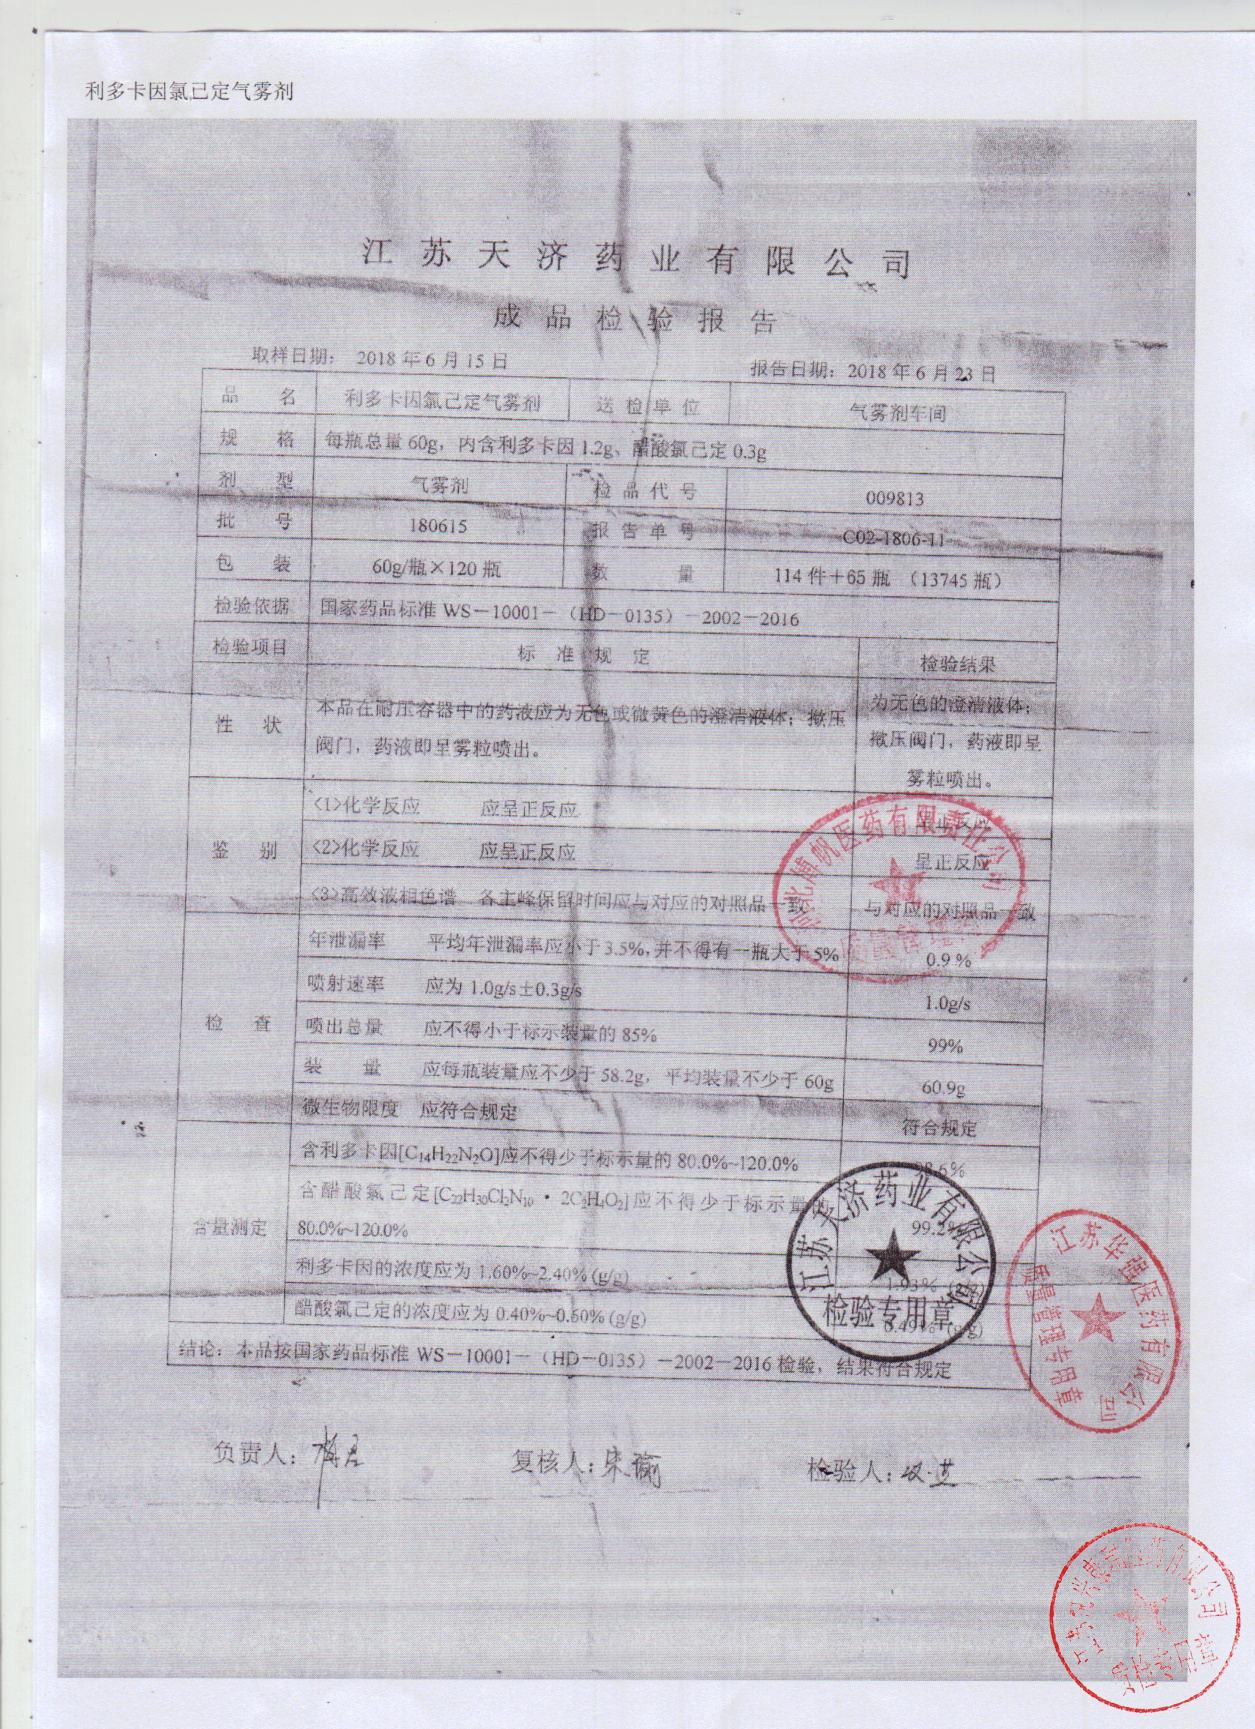 利多卡因氯己定气雾剂
江苏天济药业有限公司
成品检验报告
取样日期： 2018年6月15日 报告日期：2018年6月23日
品 名 利多卡因氯己定气雾剂 送检单位 气雾剂车间
规 格 每瓶总量60g，内含利多卡因1.2g、醋酸氯己定0.3g
剂 型 气雾剂 检品代号 009813
批 号 180615 报告单号 C02-1806-11
包 装 60g/瓶×120瓶 数 量 114件＋65瓶 （13745瓶）
检验依据 国家药品标准WS－10001－（HD－0135）－2002－2016
检验项目 标准规定 检验结果
性 状 本品在耐压容器中的药液应为无色或微黄色的澄清液体；揿压
阀门，药液即呈雾粒喷出。
为无色的澄清液体；
揿压阀门，药液即呈
雾粒喷出。
鉴 别 <1>化学反应 应呈正反应 呈正反应
<2>化学反应 应呈正反应 呈正反应
<3>高效液相色谱 各主峰保留时间应与对应的对照品一致 与对应的对照品一致
检 查 年泄漏率 平均年泄漏率应小于3.5%,并不得有一瓶大于5% 0.9%
喷射速率 应为1.0g/s±0.3g/s 1.0g/s
喷出总量 应不得小于标示装量的85% 99%
装 量 应每瓶装量应不少于58.2g，平均装量不少于60g 60.9g
微生物限度 应符合规定 符合规定
含量测定 含利多卡因[C14H22N2O]应不得少于标示量的80.0%~120.0%
含醋酸氯己定[C22H30Cl2N10·2C2H4O2]应不得少于标示量的
80.0%~120.0% 99.2%
利多卡因的浓度应为1.60%~2.40%(g/g) 1.93%
醋酸氯己定的浓度应为0.40%~0.60%(g/g) 0.49% (g/g)
结论：本品按国家药品标准WS－10001－（HD－0135）－2002－2016检验，结果符合规定
负责人： 复核人：宋 检验人：
河北博帆医药有限责任公司
质量管理
江苏天济药业有限公司
检验专用章
江苏华强医药有限公司
质量管理专用章